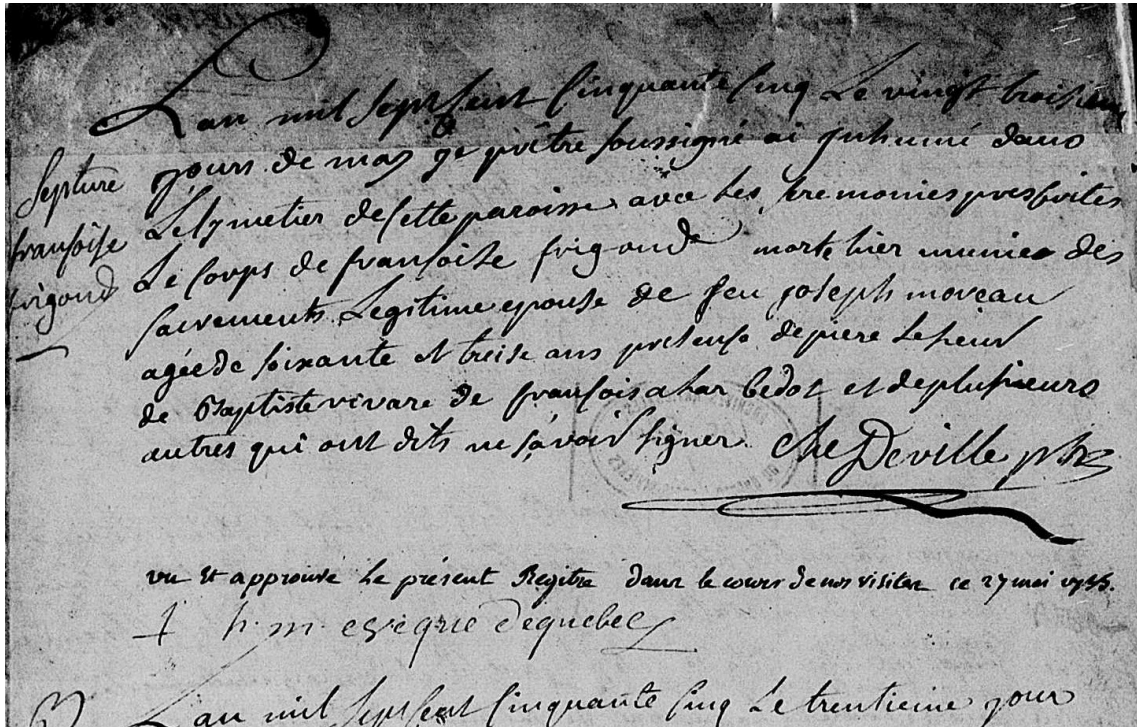 Lan mil sept sent sinquante sinq Le vingt troisiem
Septure
fransoise
frigond
jours de may ge prêtre soussigné ai inhumé dans
Le symetier de sette paroisse avec les seremonies prescrites
Le corps de fransoise frigond morte hier munie des
sacrements Legitime epouse de feu joseph moreau
agée de soixante et treise ans presense de piere Lesieur
de Baptiste vivare de fransois bedot et de plusieurs
autres qui ont dits ne savoir signer. che Deville ptre
vu Et approuvé le présent Registre dans le cours de nos visites ce 27 mai 1755.
† h. m. eveque de quebec
Lan mil sept sent sinquante sinq Le trentieme jour